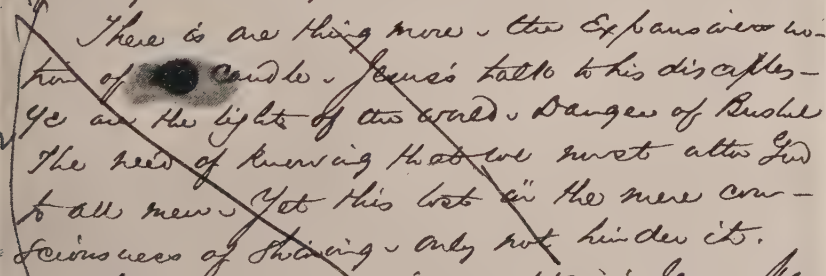 There is one thing more. the Expansiveness no-
tion of Candle. Jesus's talk to his disciples-
Ye are the lights of the world. Danger of Bushel
The need of knowing that we must utter God
to all men. Yet this lost in the mere con-
sciousness of shining. only not hinder it.